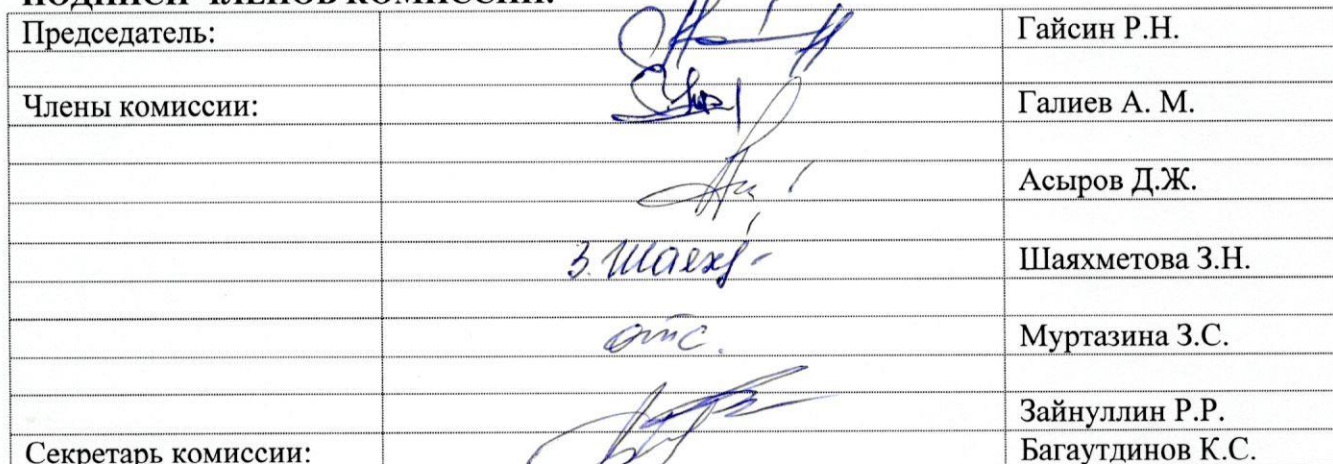 ПОДПИСИ ЧЛЕНОВ КОМИССИИ:
Председатель: Гайсин Р.Н.
Члены комиссии: Галиев А. М.
Асыров Д.Ж.
З. Шаях Шаяхметова З.Н.
отс. Муртазина З.С.
Зайнуллин Р.Р.
Секретарь комиссии: Багаутдинов К.С.